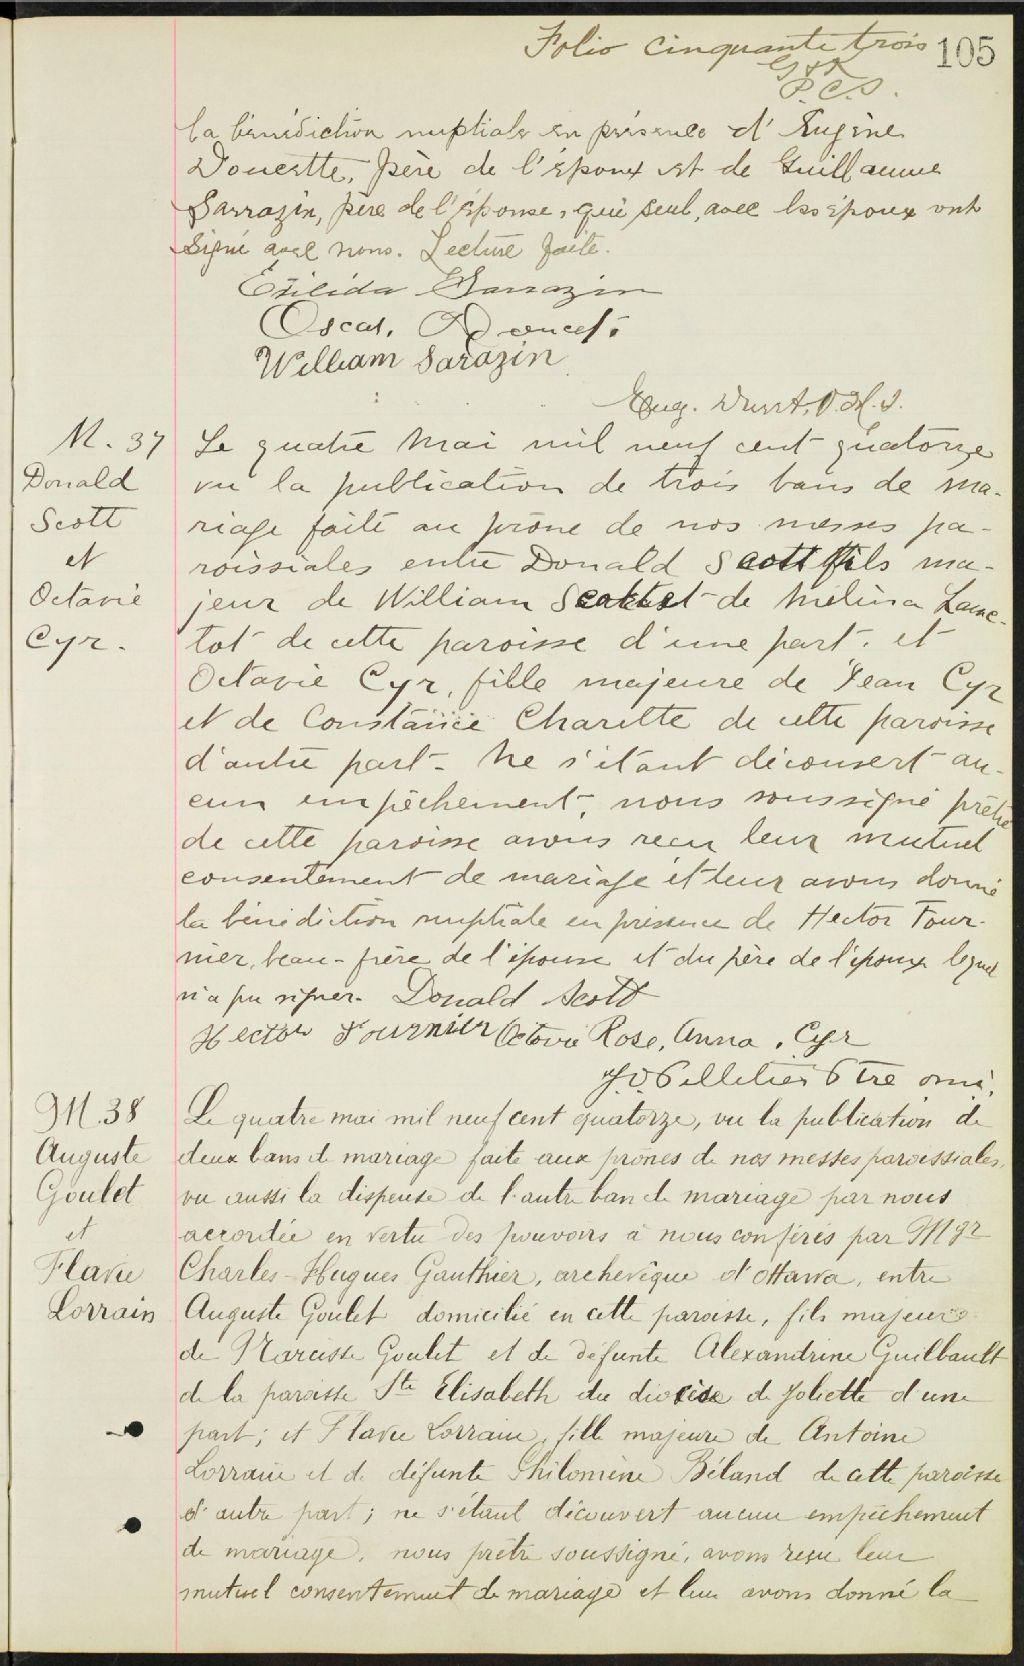 Folio cinquante trois 105
P.C.S.
la bénédiction nuptiale en présence d'Eugène
Doucette, père de l'époux et de Guillaume
Sarrazin, père de l'épouse, qui seul, avec les époux ont
signé avec nous. Lecture faite.
Exilida Sarrazin
Oscar. Doucet.
William Sarazin
Eug. O.M.I.
M. 37
Donald
Scott
et
Octavie
Cyr.
Le quatre Mai mil neuf cent quatorze
vu la publication de trois bans de ma-
riage faite au prône de nos messes pa-
roissiales entre Donald Scott fils ma-
jeur de William Scott et de Mélina Lanc-
tot de cette paroisse d'une part. et
Octavie Cyr, fille majeure de Jean Cyr
et de Constance Charette de cette paroisse
d'autre part. Ne s'étant découvert au-
cun empêchement, nous soussigné prêtre
de cette paroisse avons reçu leur mutuel
consentement de mariage et leur avons donné
la bénédiction nuptiale en présence de Hector Four-
nier, beau-frère de l'épouse et du père de l'époux lequel
n'a pu signer. Donald Scott
Hector Fournier Octavie Rose, Anna, Cyr
J.O. Pelletier Ptre omi.
M. 38
Auguste
Goulet
et
Flavie
Lorrain
Le quatre mai mil neuf cent quatorze, vu la publication de
deux bans de mariage faite aux prônes de nos messes paroissiales,
vu aussi la dispense de l'autre ban de mariage par nous
accordée en vertu des pouvoirs à nous conférés par Mgr
Charles-Hugues Gauthier, archevêque d'Ottawa, entre
Auguste Goulet domicilié en cette paroisse, fils majeur
de Narcisse Goulet et de défunte Alexandrine Guilbault
de la paroisse Ste Elisabeth du diocèse de Joliette d'une
part; et Flavie Lorrain, fille majeure de Antoine
Lorrain et de défunte Philomène Béland de cette paroisse
d'autre part; ne s'étant découvert aucun empêchement
de mariage, nous prêtre soussigné, avons reçu leur
mutuel consentement de mariage et leur avons donné la